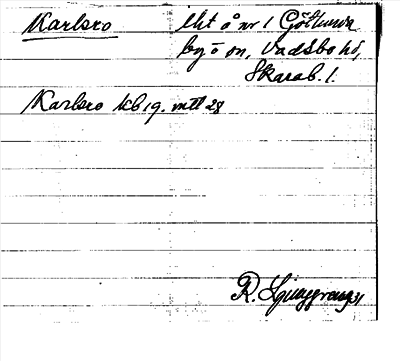 Karlsro lht å nr 1 Götlunda
by o sn, Vadsbo hd,
Skarab. l.
Karlsro kb 19. mtl 28
R. Ljunggren 31